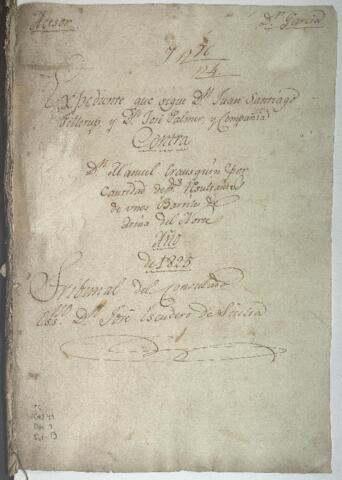 Acesor
Dr. Garcia
Expediente que sigue Dn. Juan Santiago
Tellerup, y Dn. José Palmer, y Compañia
Contra
Dn. Manuel Erausquin por
Cantidad de ps. resultantes
de unos Barriles de
Arina del Norte
Año
de 1825
Tribunal del Consulado
Essno. Dn. José Escudero de Sicilia